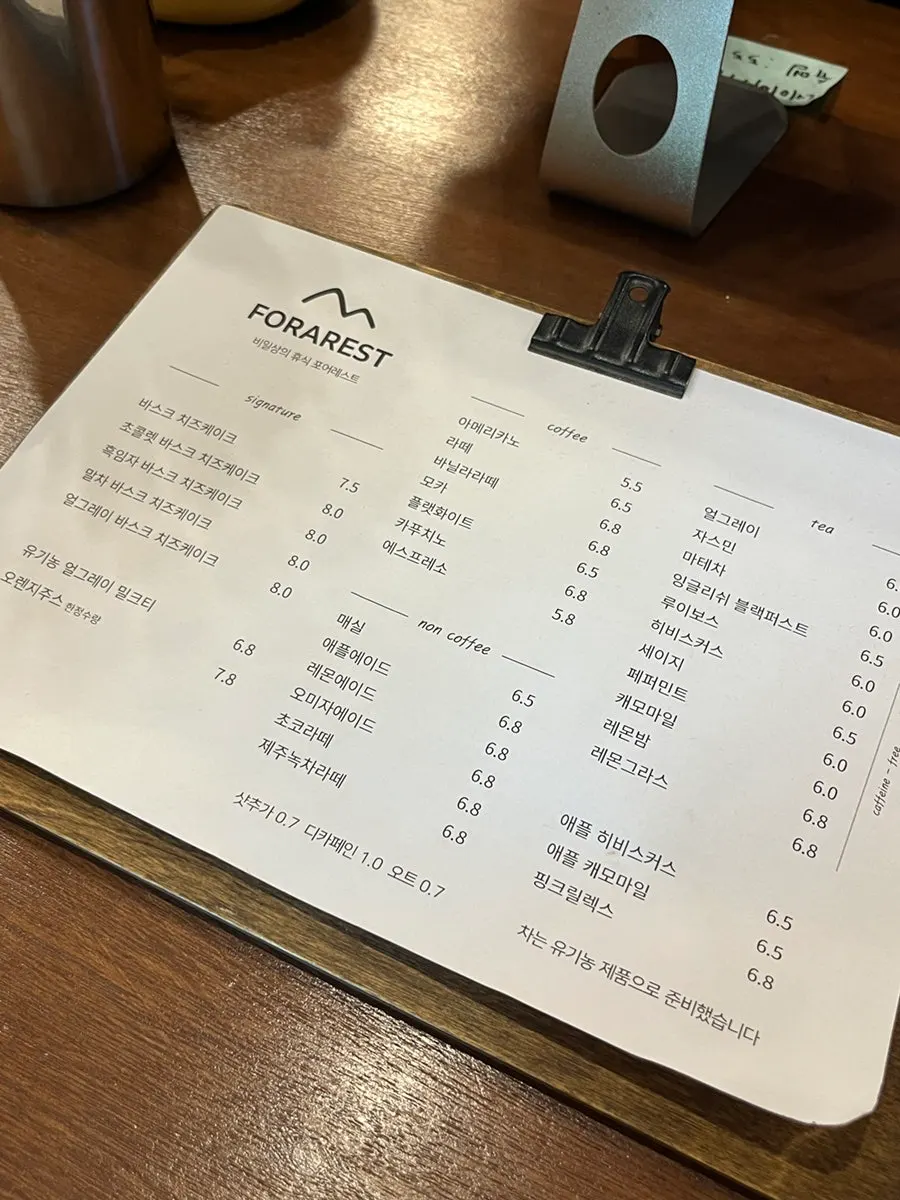 FORAREST
비일상의 휴식 포어레스트
signature
바스크 치즈케이크 7.5
초콜렛 바스크 치즈케이크 8.0
흑임자 바스크 치즈케이크 8.0
말차 바스크 치즈케이크 8.0
얼그레이 바스크 치즈케이크 8.0
유기농 얼그레이 밀크티 6.8
오렌지주스 한정수량 7.8
coffee
아메리카노 5.5
라떼 6.5
바닐라라떼 6.8
모카 6.8
플랫화이트 6.5
카푸치노 6.8
에스프레소 5.8
non coffee
매실 6.5
애플에이드 6.8
레몬에이드 6.8
오미자에이드 6.8
초코라떼 6.8
제주녹차라떼 6.8
샷추가 0.7 디카페인 1.0 오트 0.7
tea
얼그레이
자스민 6.0
마테차 6.0
잉글리쉬 블랙퍼스트 6.5
루이보스 6.0
히비스커스 6.0
세이지 6.5
페퍼민트 6.0
캐모마일 6.0
레몬밤 6.8
레몬그라스 6.8
caffeine - free
애플 히비스커스 6.5
애플 캐모마일 6.5
핑크릴렉스 6.8
차는 유기농 제품으로 준비했습니다